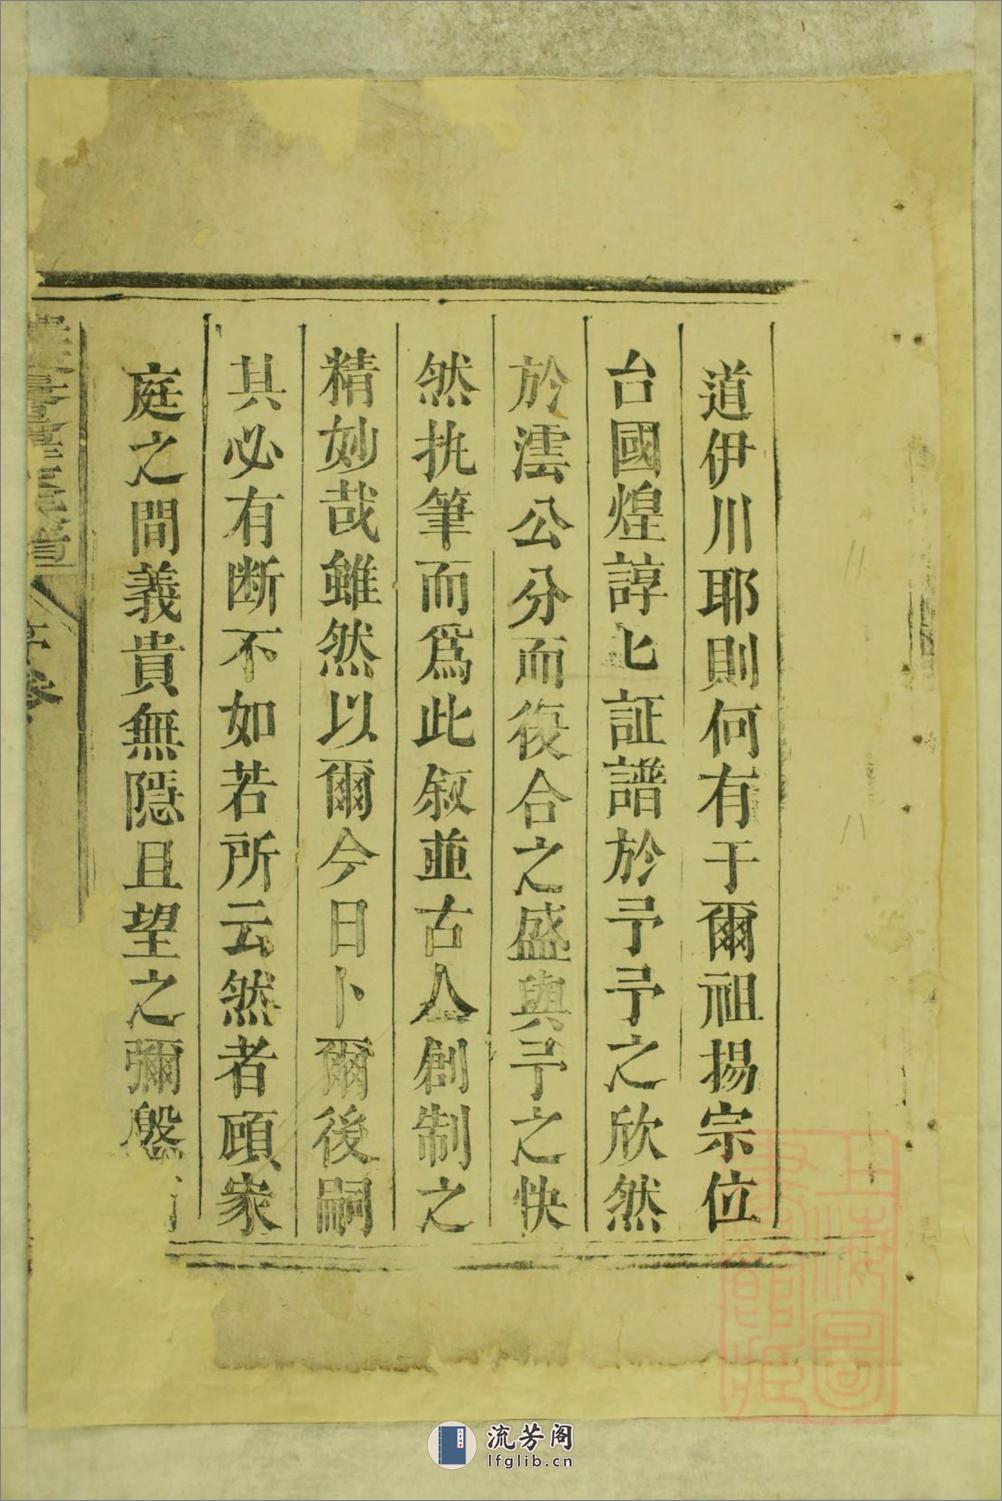 道伊川耶則何有于爾祖揚宗位
台國煌諄匕証譜於予予之欣然
於澐公分而復合之盛與予之快
然执筆而爲此叙並古人創制之
精妙哉雖然以爾今日卜爾後嗣
其必有断不如若所云然者頋家
庭之間義貴無隠且望之彌殷
首卷
上海圖書館藏
流芳阁
lfglib.cn